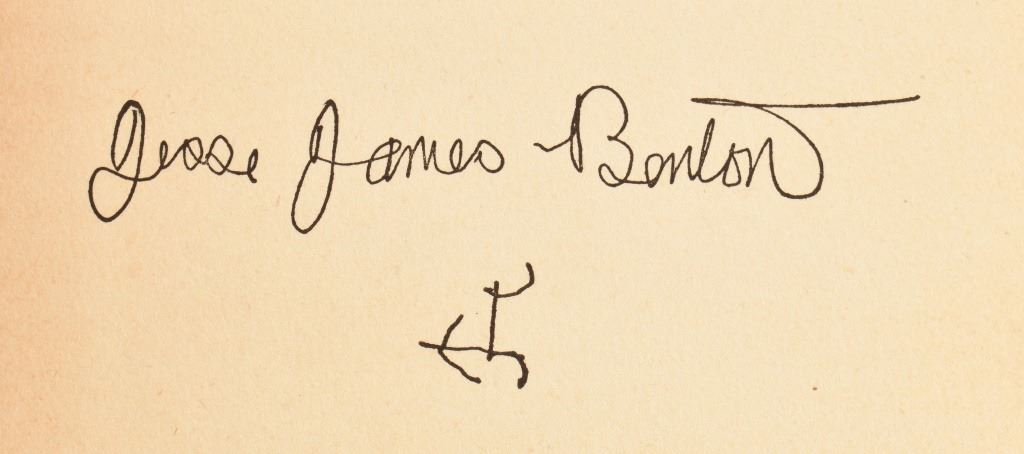 Jesse James Benton